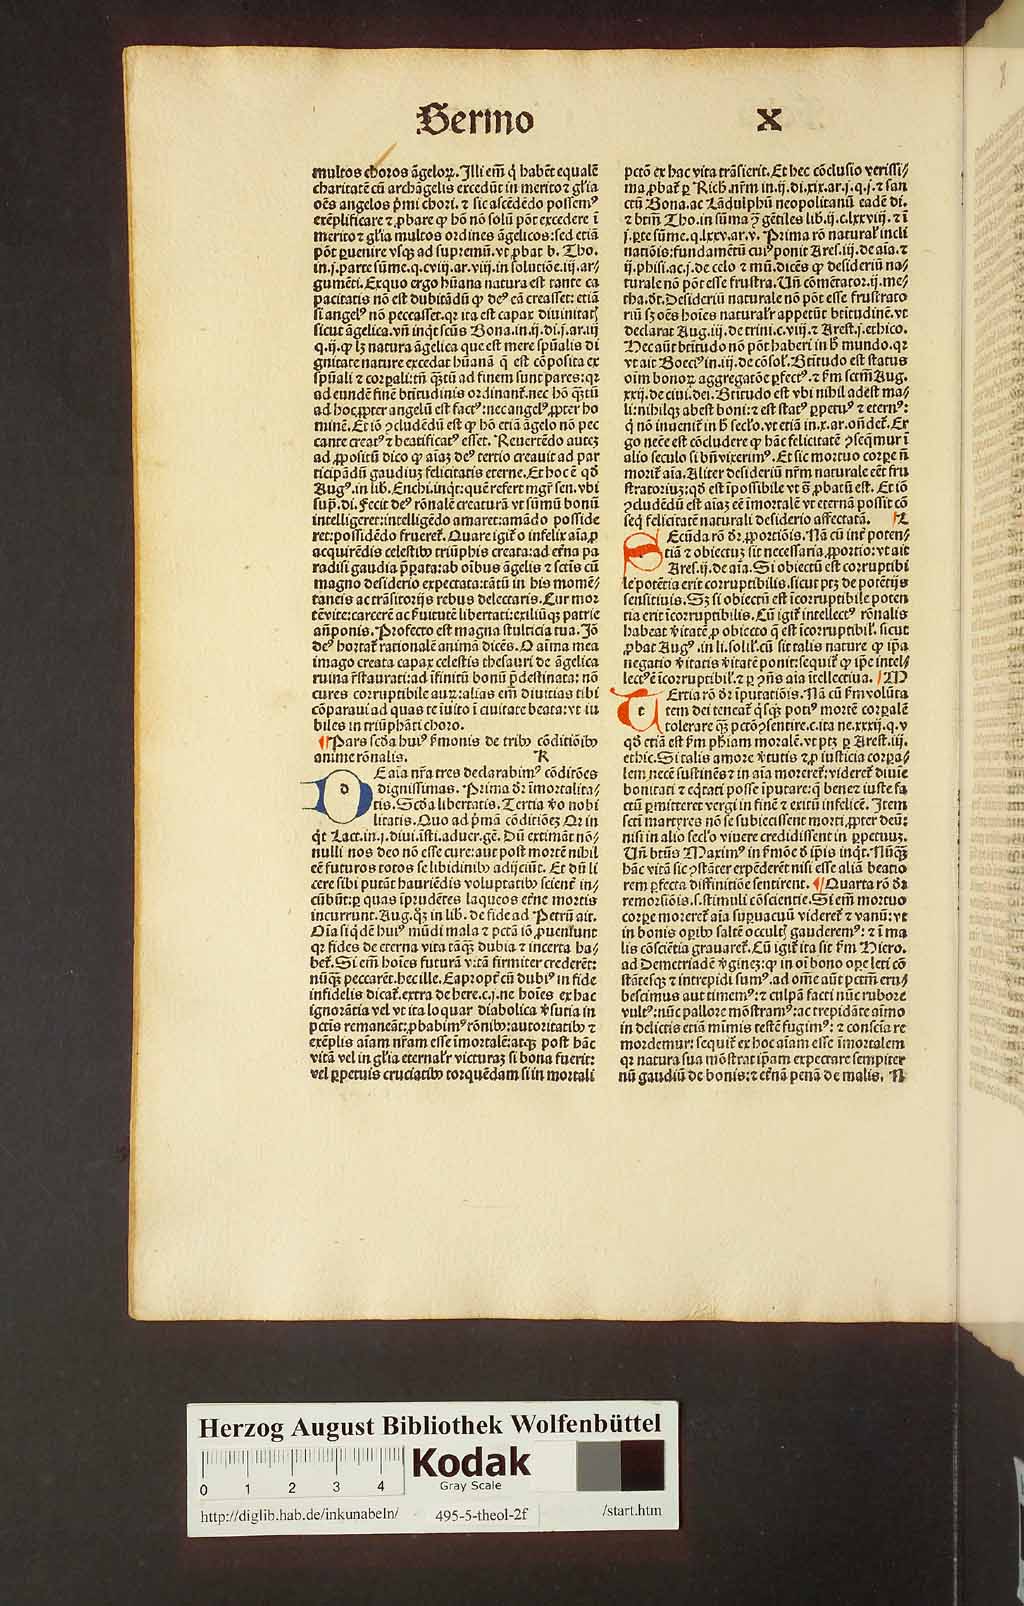 Sermo X
multos choros ãgeloꝝ. Illi em̃ q̇ habẽt equalẽ
charitatẽ cũ archãgelis excedũt in merito ⁊ gl̃ia
oẽs angelos p̃mi chori. ⁊ sic ascẽdẽdo possemꝰ
exẽplificare ⁊ ꝓbare ꝙ hõ nõ solũ põt excedere ĩ
merito ⁊ gl̃ia multos ordines ãgelicos: sed etiã
põt ꝑuenire vsqꝫ ad supremũ. vt ꝓbat b. Tho.
in .j. parte sũme. q. cviij. ar. viij. in solutiõe. iij. ar-
gumẽti. Ex quo ergo hũana natura est tante ca
pacitatis nõ est dubitãdũ ꝙ deꝰ eã creasset: etiã
si angelꝰ nõ peccasset. qꝛ ita est capax diuinitatꝭ
sicut ãgelica. vñ inq̇t scũs Bona. in .ij. di. j. ar. iij
q. ij. ꝙ lꝫ natura ãgelica que est mere sp̃ualis di
gnitate nature excedat hũanã q̃ est cõposita ex
sp̃uali ⁊ corꝑali: tñ q̃ꝫtũ ad finem sunt pares: qꝛ
ad eundẽ finẽ btĩtudinis ordinant̃. nec hõ q̃ꝫtũ
ad hoc ꝓpter angelũ est factꝰ: nec angelꝰ ꝓpter ho
minẽ. Et iõ ꝯcludẽdũ est ꝙ hõ etiã ãgelo nõ pec
cante creatꝰ ⁊ beatificatꝰ esset. Reuertẽdo autẽꝫ
ad ꝓpositũ dico ꝙ aĩaꝫ deꝰ tertio creauit ad par
ticipãdũ gaudiuꝫ felicitatis eterne. Et hoc ẽ qð
Augꝰ. in lib. Enchi. inq̇t: quẽ refert mgr̃ sen. vbi
sup̃. di. j. Fecit deꝰ rõnalẽ creaturã vt sũmũ bonũ
intelligeret: intelligẽdo amaret: amãdo posside
ret: possidẽdo frueret̃. Quare igit̃ o infelix aĩa ꝓ
acquirẽdis celestibꝰ triũphis creata: ad et̃na pa
radisi gaudia p̃ꝑata: ab oĩbus ãgelis ⁊ sctĩs cũ
magno desiderio expectata: tãtũ in his momẽ-
taneis ac trãsitorijs rebus delectaris. Cur mor
tẽ vite: carcerẽ ac ẜuitutẽ libertati: exiliũqꝫ patrie
añponis. Profecto est magna stulticia tua. Iõ
deꝰ hortat̃ rationalẽ animã dicẽs. O aĩma mea
imago creata capax celestis thesauri de ãgelica
ruina r̃staurati: ad ĩfinitũ bonũ p̃destinata: nõ
cures corruptibile auꝝ: alias em̃ diuitias tibi
cõparaui ad quas te ĩuito ĩ ciuitate beata: vt iu
biles in triũphãti choro.
¶ Pars scða huiꝰ ẜmonis de tribꝰ cõditiõibꝰ
anime rõnalis. K
De aĩa nr̃a tres declarabimꝰ cõditiões
dignissimas. Prima dr̃ ĩmortalita-
tis. Scða libertatis. Tertia ṽo nobi
litatis. Quo ad p̃mã cõditiõeꝫ Qꝛ in
q̇t Lact. in .j. diui. ĩsti. aduer. gẽ. Dũ extimãt nõ-
nulli nos deo nõ esse cure: aut post mortẽ nihil
eẽ futuros totos se libidinibꝰ adijciũt. Et dũ li
cere sibi putãt hauriẽdis voluptatibꝰ scient̃ in-
cũbũt: ꝑ quas ĩprudẽtes laqueos et̃ne mortis
incurrunt. Aug. q̃ꝫ in lib. de fide ad Petrũ ait.
Oĩa siq̇dẽ huiꝰ mũdi mala ⁊ pctã iõ ꝓueniunt
qꝛ fides de eterna vita tãqꝫ dubia ⁊ incerta ha-
bet̃. Si em̃ hoĩes futurã vitã firmiter crederẽt:
nũqꝫ peccarẽt. hec ille. Eaꝓpt̃ cũ dubiꝰ in fide
infidelis dicat̃. extra de here. c. j. ne hoĩes ex hac
ignorãtia vel vt ita loquar diabolica ṽsutia in
pctĩs remaneãt: ꝓbabimꝰ rõnibꝰ: autoritatibꝰ ⁊
exẽplis aĩam nr̃am esse ĩmortalẽ: atqꝫ post hãc
vitã vel in gl̃ia eternalr̃ victuraꝫ si bona fuerit:
vel ꝑpetuis cruciatibꝰ torquẽdam si in mortali
pctõ ex hac vita trãsierit. Et hec cõclusio verissi-
ma ꝓbat̃ ꝑ Rich. nr̃m in .ij. di. xix. ar. j. q. j. ⁊ san
ctũ Bona. ac Lãdulphũ neopolitanũ eadẽ di.
⁊ btm̃ Tho. in sũma ꝯ̃ gẽtiles lib. ij. c. lxxviij. ⁊ ĩ
j. ꝑte sũme. q. lxxv. ar. v. Prima rõ natural̃ incli
natiõis: fundamẽtũ cuiꝰ ponit Ares. iij. de aĩa. ⁊
ij. phisi. ac .j. de celo ⁊ mũ. dicẽs ꝙ desideriũ na-
turale nõ põt esse frustra. Uñ cõmẽtator. ij. me-
tha. ðt. Desideriũ naturale nõ põt esse frustrato
riũ sꝫ oẽs hoĩes naturalr̃ appetũt btĩtudinẽ. vt
declarat Aug. iij. de trini. c. viij. ⁊ Arest. j. ethico.
Hec aũt btĩtudo nõ põt haberi in h̃ mundo. qꝛ
vt ait Boecꝰ in .iij. de cõsol̃. Btĩtudo est status
oĩm bonoꝝ aggregatõe ꝑfectꝰ. ⁊ ẜm sctm̃ Aug.
xxij. de ciui. dei. Btĩtudo est vbi nihil adest ma-
li: nihilqꝫ abest boni: ⁊ est statꝰ ꝑpetuꝰ ⁊ eternꝰ:
q̇ nõ inuenit̃ in h̃ secl̃o. vt etiã in .x. ar. oñdet̃. Er
go necẽ est cõcludere ꝙ hãc felicitatẽ ꝯseq̃mur ĩ
alio seculo si bñ vixerimꝰ. Et sic mortuo corꝑe ñ
morit̃ aĩa. Aliter desideriũ nr̃m naturale eẽt fru
stratoriuꝫ: qð est ĩpossibile vt s̃ ꝓbatũ est. Et iõ
ꝯcludẽdũ est aĩaꝫ eẽ ĩmortalẽ vt eternã possit cõ
seq̇ felicitatẽ naturali desiderio affectatã. L
Secũda rõ dr̃ ꝓportiõis. Nã cũ int̃ poten-
tiã ⁊ obiectuꝫ sit necessaria ꝓportio: vt ait
Ares. ij. de aĩa. Si obiectũ est corruptibi
le potẽtia erit corruptibilis. sicut ptꝫ de potẽtijs
sensitiuis. Sꝫ si obiectũ est ĩcorruptibile poten
tia erit ĩcorruptibilis. Cũ igit̃ intellectꝰ rõnalis
habeat ṽitatẽ ꝓ obiecto q̃ est ĩcorruptibil̃. sicut
ꝓbat Augꝰ. in li. solil̃. cũ sit talis nature ꝙ ip̃a
negatio ṽitatis ṽitatẽ ponit: sequit̃ ꝙ ip̃e intel-
lectꝰ ẽ ĩcorruptibil̃. ⁊ ꝑ ꝯñs aĩa ĩtellectiua. M
Tertia rõ dr̃ ĩputatiõis. Nã cũ ẜm volũta
tem dei teneat̃ q̇sqꝫ potiꝰ mortẽ corꝑalẽ
tolerare q̃ꝫ pctõ ꝯsentire. c. ita ne. xxxij. q. v
qð etiã est ẜm ph̃iam moralẽ. vt ptꝫ ꝑ Arest. iij.
ethic. Si talis amore ṽtutis ⁊ ꝓ iusticia corꝑa-
lem necẽ sustinẽs ⁊ in aĩa moreret̃: videret̃ diuie
bonitati ⁊ eq̇tati posse ĩputare: q̇ benẽꝫ iuste fa
ctũ ꝑmitteret vergi in finẽ ⁊ exitũ infelicẽ. Item
sctĩ martyres nõ se subiecissent morti ꝓpter deũ:
nisi in alio secl̃o viuere credidissent in ꝑpetuuꝫ.
Uñ btũs Maximꝰ in ẜmõe ð ip̃is inq̇t. Nũqꝫ
hãc vitã sic ꝯstãter expẽderẽt nisi esse aliã beatio
rem ꝑfecta diffinitiõe sentirent. ¶ Quarta rõ dr̃
remorsiõis. s. stimuli cõscientie. Si em̃ mortuo
corꝑe moreret̃ aĩa suꝑuacuũ videret̃ ⁊ vanũ: vt
in bonis oꝑibꝰ saltẽ occultꝭ gauderemꝰ: ⁊ ĩ ma
lis cõsciẽtia grauaret̃. Cũ igit̃ ita sit ẜm Hiero.
ad Demetriadẽ ṽginẽꝫ: ꝙ in oĩ bono oꝑe leti cõ
stãtesqꝫ ⁊ intrepidi sumꝰ. ad omẽ aũt pctm̃ eru-
bescimus aut timemꝰ: ⁊ culpã facti nũc rubore
vultꝰ: nũc pallore mõstramꝰ: ac trepidãte aĩmo
in delictis etiã mĩmis testẽ fugimꝰ: ⁊ conscia re
mordemur: sequit̃ ex hoc aĩam esse ĩmortalem
qꝛ natura sua mõstrat ip̃am expectare sempiter
nũ gaudiũ de bonis: ⁊ et̃nã penã de malis. N
Herzog August Bibliothek Wolfenbüttel
0 1 2 3 4
Kodak
Gray Scale
http://diglib.hab.de/inkunabeln/ 495-5-theol-2f /start.htm